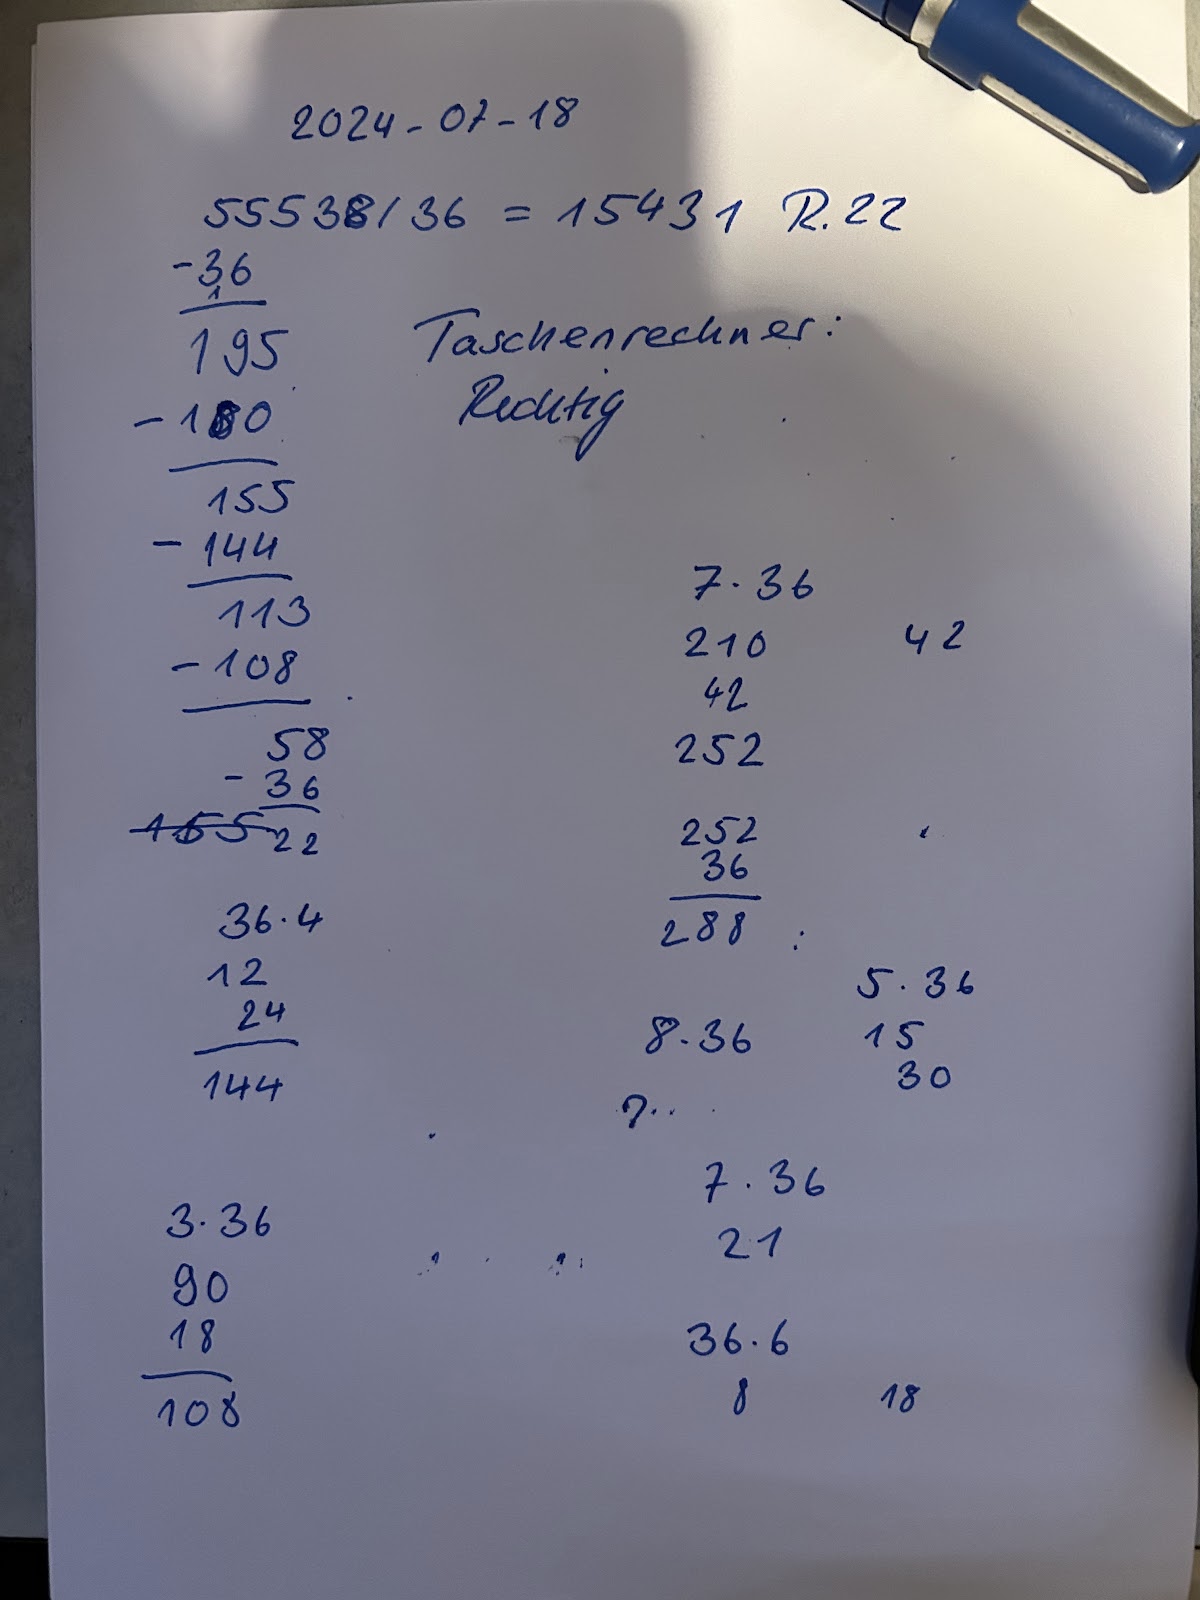 2024-07-18
55538/36 = 15431 R.22
-36
1
195
Taschenrechner:
Richtig
-180
155
-144
113
-108
58
-36
155 22
36·4
12
24
144
3·36
90
18
108
7·36
210 42
42
252
252
36
288
5·36
15
30
8·36
7·36
21
36·6
8 18